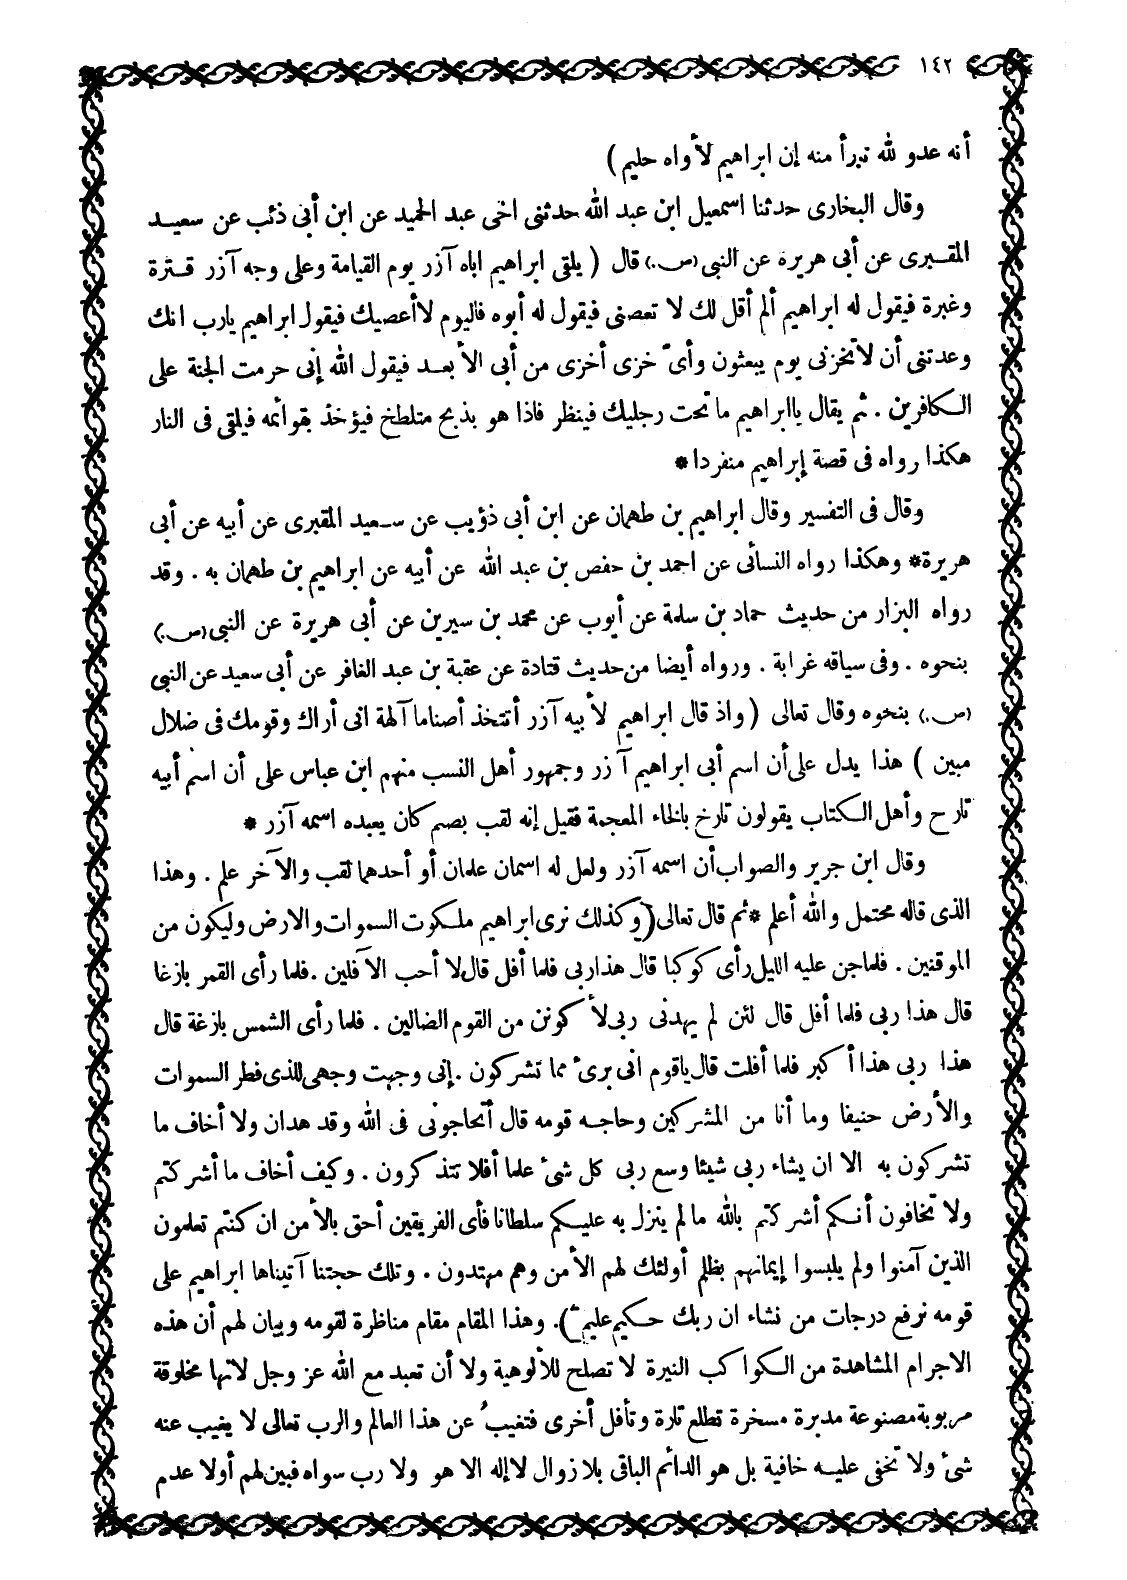 ١٤٢
أنه عدو لله تبرأ منه إن ابراهيم لأواه حليم )
وقال البخارى حدثنا اسمعيل ابن عبد الله حدثنى اخى عبد الحميد عن ابن أبى ذئب عن سعيد
المقبرى عن أبى هريرة عن النبى (ص.) قال ( يلقى ابراهيم اباه آزر يوم القيامة وعلى وجه آزر قترة
وغبرة فيقول له ابراهيم ألم أقل لك لا تعصنى فيقول له أبوه فاليوم لاأعصيك فيقول ابراهيم يارب انك
وعدتنى أن لاتخزنى يوم يبعثون وأىّ خزى أخزى من أبى الأبعد فيقول الله إنى حرمت الجنة على
الكافرين . ثم يقال ياابراهيم ماتحت رجليك فينظر فاذا هو بذبح متلطخ فيؤخذ بقوائمه فيلقى فى النار
هكذا رواه فى قصة إبراهيم منفردا *
وقال فى التفسير وقال ابراهيم بن طهمان عن ابن أبى ذؤيب عن سعيد المقبرى عن أبيه عن أبى
هريرة* وهكذا رواه النسائى عن احمد بن حفص بن عبد الله عن أبيه عن ابراهيم بن طهمان به . وقد
رواه البزار من حديث حماد بن سلمة عن أيوب عن محمد بن سيرين عن أبى هريرة عن النبى (ص.)
بنحوه . وفى سياقه غرابة . ورواه أيضا من حديث قتادة عن عقبة بن عبد الغافر عن أبى سعيد عن النبى
(ص.) بنحوه وقال تعالى ( واذ قال ابراهيم لأبيه آزر أتتخذ أصناما آلهة انى أراك وقومك فى ضلال
مبين ) هذا يدل على أن اسم أبى ابراهيم آزر وجمهور أهل النسب منهم ابن عباس على أن اسم أبيه
تارح وأهل الكتاب يقولون تارخ بالخاء المعجمة فقيل إنه لقب بصنم كان يعبده اسمه آزر *
وقال ابن جرير والصواب أن اسمه آزر ولعل له اسمان علمان أو أحدهما لقب والآخر علم . وهذا
الذى قاله محتمل والله أعلم * ثم قال تعالى (وكذلك نرى ابراهيم ملكوت السموات والارض وليكون من
الموقنين . فلما جن عليه الليل رأى كوكبا قال هذا ربى فلما أفل قال لا أحب الآفلين . فلما رأى القمر بازغا
قال هذا ربى فلما أفل قال لئن لم يهدنى ربى لأكونن من القوم الضالين . فلما رأى الشمس بازغة قال
هذا ربى هذا أكبر فلما أفلت قال ياقوم انى برىء مما تشركون . إنى وجهت وجهى للذى فطر السموات
والأرض حنيفا وما أنا من المشركين وحاجه قومه قال أتحاجونى فى الله وقد هدان ولا أخاف ما
تشركون به الا ان يشاء ربى شيئا وسع ربى كل شىء علما أفلا تتذكرون . وكيف أخاف ما أشركتم
ولا تخافون أنكم أشركتم بالله مالم ينزل به عليكم سلطانا فأى الفريقين أحق بالأمن ان كنتم تعلمون
الذين آمنوا ولم يلبسوا إيمانهم بظلم أولئك لهم الأمن وهم مهتدون . وتلك حجتنا آتيناها ابراهيم على
قومه نرفع درجات من نشاء ان ربك حكيم عليم ). وهذا المقام مقام مناظرة لقومه وبيان لهم أن هذه
الاجرام المشاهدة من الكواكب النيرة لا تصلح للألوهية ولا أن تعبد مع الله عز وجل لانها مخلوقة
مربوبة مصنوعة مدبرة مسخرة تطلع تارة وتأفل أخرى فتغيبُ عن هذا العالم والرب تعالى لا يغيب عنه
شىء ولا تخفى عليه خافية بل هو الدائم الباقى بلا زوال لا إله الا هو ولا رب سواه فبين لهم أولا عدم